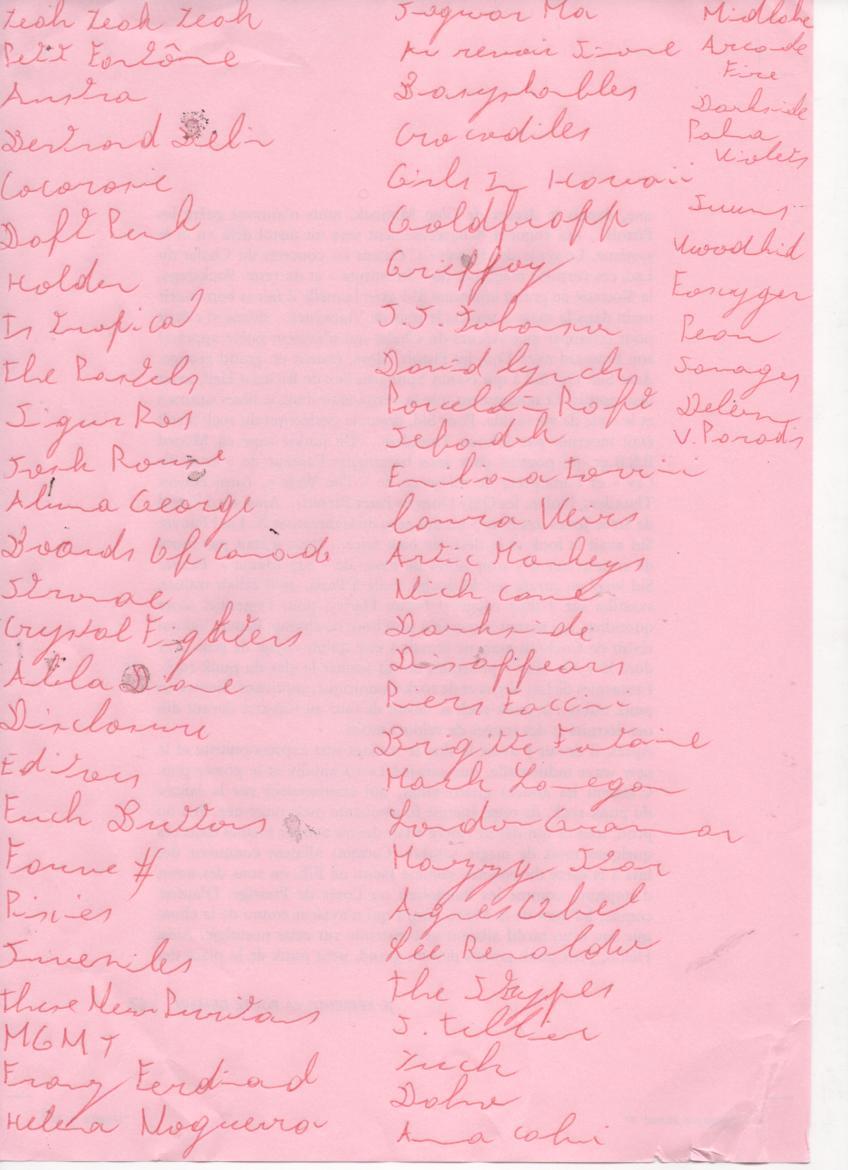 Zeah Zeah Zeah
Petit Fantôme
Austra
Bertrand Belin
Cocorosie
Daft Punk
Holden
Is Tropical
The Pastels
Sigur Ros
Josh Rouse
Aluna George
Boards Of Canada
Stromae
Crystal Fighters
Alela Diane
Disclosure
Editors
Fuck Buttons
Fauve #
Pixies
Juveniles
These New Puritans
MGMT
Franz Ferdinad
Helena Nogueira
Jagwar Ma
Au revoir Simone
Crocodiles
Girls In Hawaii
Goldfrapp
Griefjoy
J.J. Johanson
David Lynch
Porcelain Raft
Sebadoh
Emiliana Torrini
Laura Veirs
Artic Monkeys
Nick Cave
Darkside
Disappears
Piers Faccini
Brigitte Fontaine
Mark Lanegan
London Grammar
Mazzy Star
Agnes Obel
Lee Renaldo
The Strypes
S. Tellier
Zuch
Daho
Ana Calvi
Midlake
Arcade
Fire
Darkside
Palma
Violets
Suuns
Woodkid
Peau
Savages
Delerm
V. Paradis